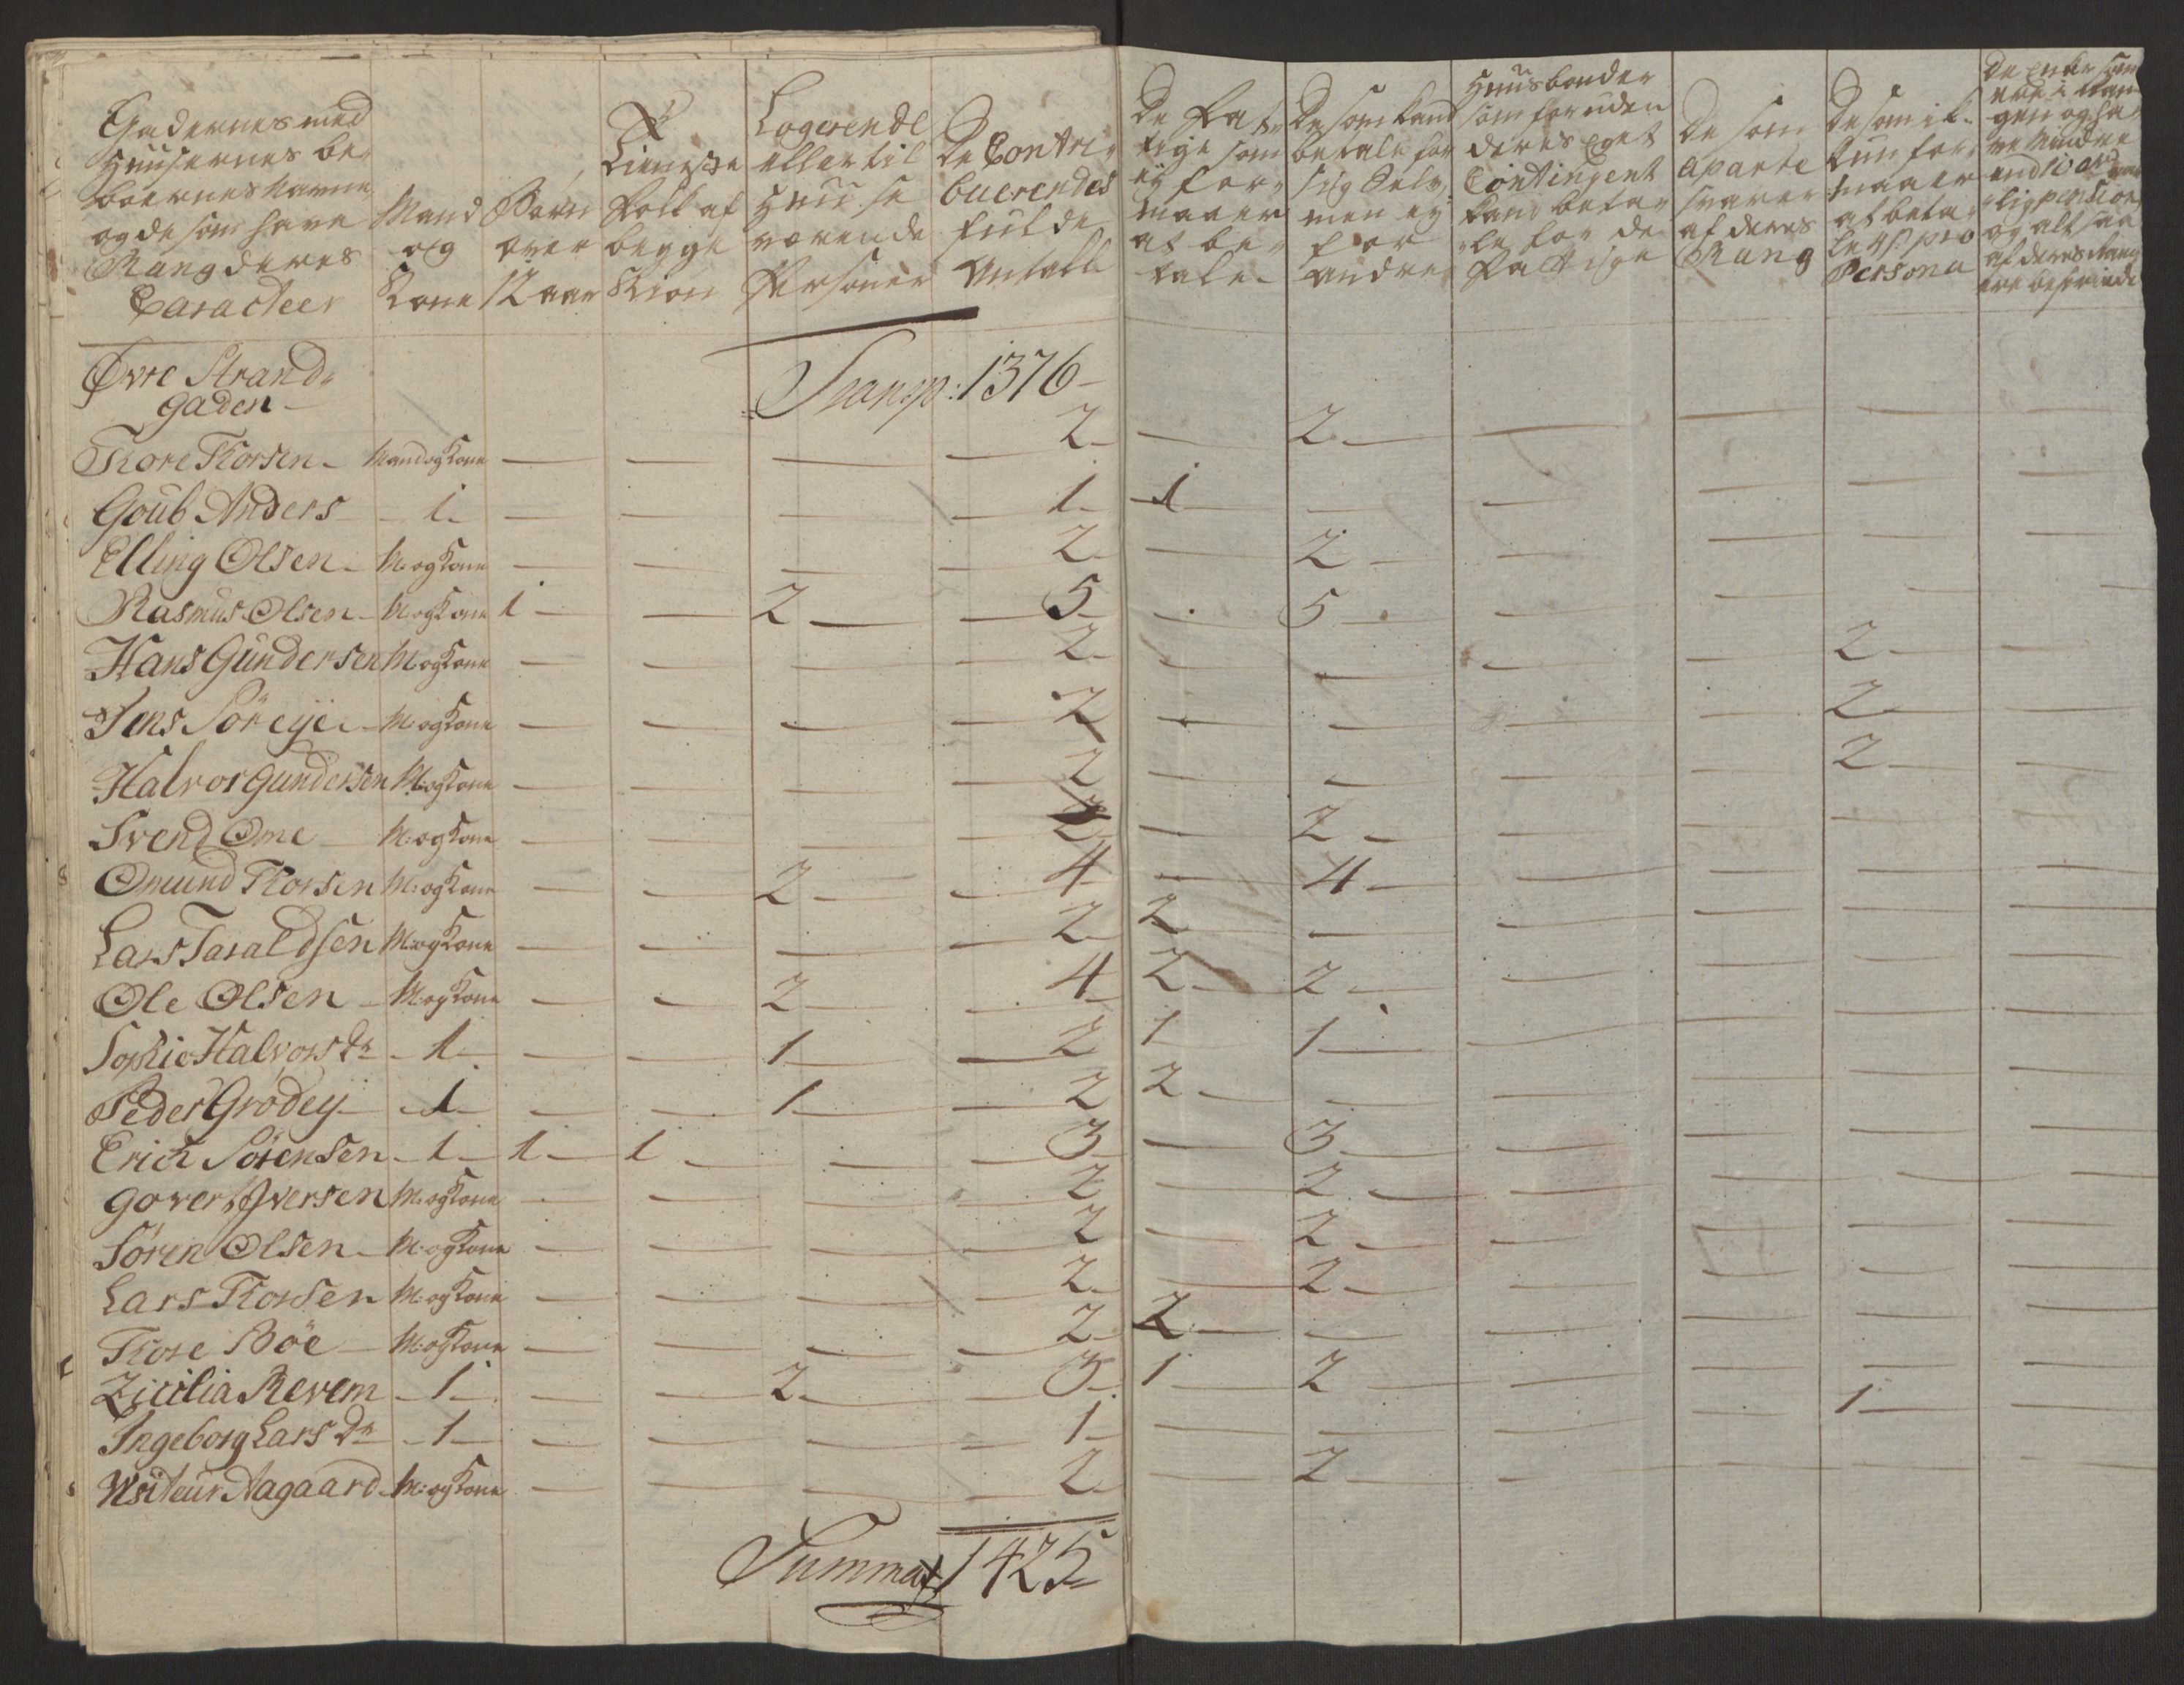 Gadernes med
Huusernes be-
boernes Navne
og de som have
Rang deres
Caracteer
Mand
og
Kone
Børn
over
12 aar
Tieniste
Folk af
begge
Kiøn
Logerende
eller til
Huuse
værende
Persohner
De Contri-
buerendes
fulde
Antall
De Fat-
tige som
ey for-
maaer
at be-
tale
De som kand
betale for
sig Selv,
men ey
for
andre
Huusbonder
som foruden
deres Eget
Contingent
kand beta-
le for de
Fattige
De som
aparte
svarer
af deres
Rang
De som ik-
kun for-
maaer
at beta-
le 4 s pro
Persona
De Enker som
ere i Ran-
gen og ha-
ve mindre
end 100
lig pension
og altsaa
af deres Rang
ere befriede
Øvre Strand-
gaden
Transp: 1376
Thore Thorsen Mand og Kone — — — 2 — 2 — — — —
Goub Anders 1 — — — 1 1 — — — — —
Elling Olsen M: og Kone — — — 2 — 2 — — — —
Rasmus Olsen M: og Kone 1 — 2 5 — 5 — — — —
Hans Gundersen M: og Kone — — — 2 — — — — 2 —
Jens Söreye M: og Kone — — — 2 — — — — 2 —
Halvor Gundersen M: og Kone — — — 2 — — — — 2 —
Svend Ome M: og Kone — — — 2 — 2 — — — —
Omund Thorsen M: og Kone — — 2 4 — 4 — — — —
Lars Taraldsen M: og Kone — — — 2 2 — — — — —
Ole Olsen M: og Kone — — 2 4 2 2 — — — —
Sophie Halvorsdr 1 — — 1 2 1 1 — — — —
Peder Grodey 1 — — 1 2 2 — — — — —
Erich Sörensen 1 1 1 — 3 — 3 — — — —
Govert Iversen M: og Kone — — — 2 — 2 — — — —
Sören Olsen M: og Kone — — — 2 — 2 — — — —
Lars Thorsen M: og Kone — — — 2 — 2 — — — —
Thore Böe M: og Kone — — — 2 2 — — — — —
Zicilia Revem 1 — — 2 3 1 2 — — — —
Ingeborg Lars Dr 1 — — — 1 — — — — 1 —
Wsiteur Aagaard M: og Kone — — — 2 — 2 — — — —
Summa 1425